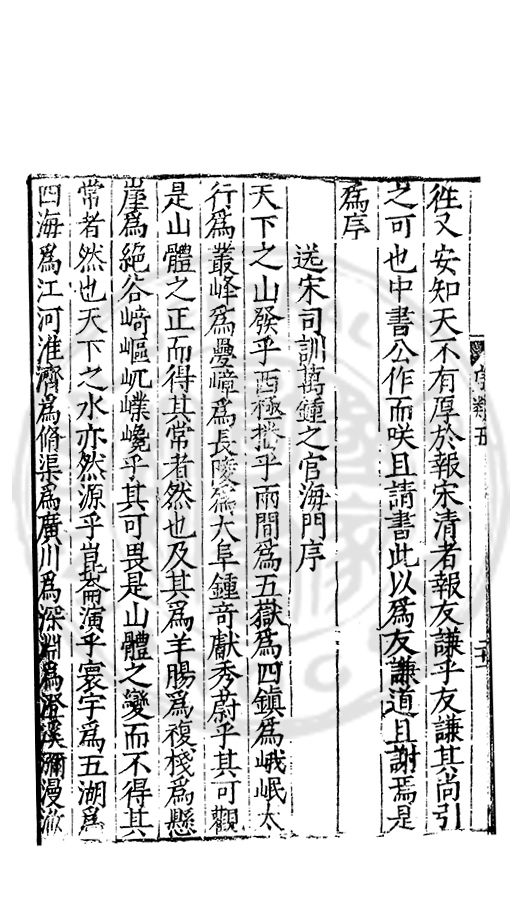 徃又安知天不有厚於報宋清者報友謙乎友謙其尚引
之可也中書公作而咲且請書此以爲友謙道且謝焉是
爲序
送宋司訓萬鍾之官海門序
天下之山發乎西極搘乎兩間爲五嶽爲四鎮爲峨岷太
行爲叢峰爲疊嶂爲長陵爲大阜鍾竒獻秀蔚乎其可觀
是山體之正而得其常者然也及其爲羊腸爲複棧爲懸
崖爲絶谷崎嶇屼嵲巉乎其可畏是山體之變而不得其
常者然也天下之水亦然源乎崑崙演乎寰宇爲五湖爲
四海爲江河淮濟爲脩渠爲廣川爲深淵爲澄溪瀰漫
序類五